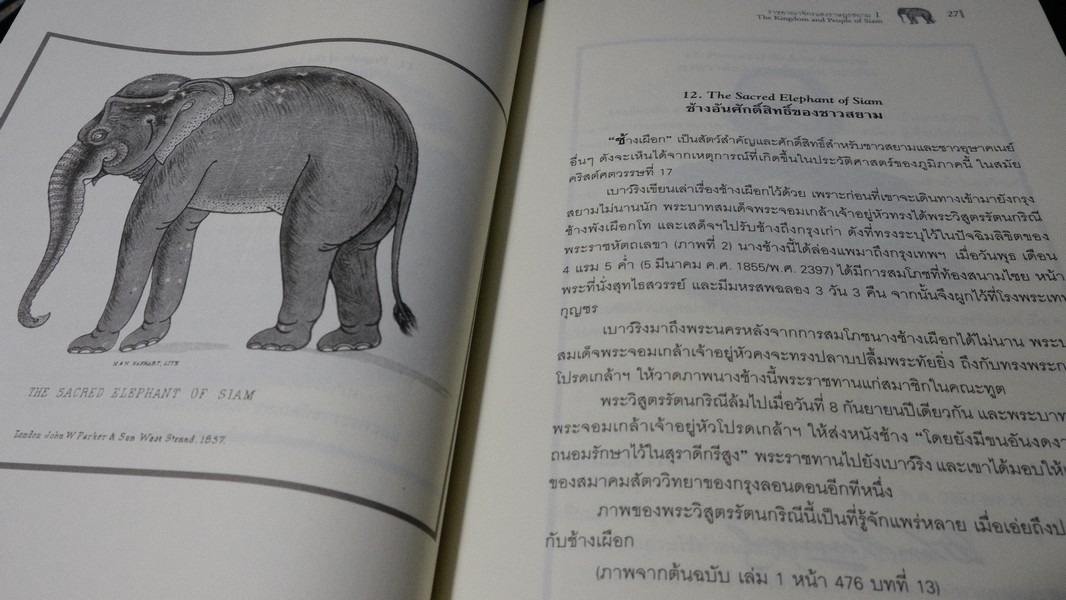 M & N HANHART, LITH
THE SACRED ELEPHANT OF SIAM
London John W Parker & Son West Strand. 1857.
ราชอาณาจักรและราษฎรสยาม 1
The Kingdom and People of Siam
27
12. The Sacred Elephant of Siam
ช้างอันศักดิ์สิทธิ์ของชาวสยาม
"ช้างเผือก" เป็นสัตว์สำคัญและศักดิ์สิทธิ์สำหรับชาวสยามและชาวอุษาคเนย์
อื่นๆ ดังจะเห็นได้จากเหตุการณ์ที่เกิดขึ้นในประวัติศาสตร์ของภูมิภาคนี้ ในสมัย
คริสต์ศตวรรษที่ 17
เบาว์ริงเขียนเล่าเรื่องช้างเผือกไว้ด้วย เพราะก่อนที่เขาจะเดินทางเข้ามายังกรุง
สยามไม่นานนัก พระบาทสมเด็จพระจอมเกล้าเจ้าอยู่หัวทรงได้พระวิสูตรรัตนกริณี
ช้างพังเผือกโท และเสด็จฯไปรับช้างถึงกรุงเก่า ดังที่ทรงระบุไว้ในปัจฉิมลิขิตของ
พระราชหัตถเลขา (ภาพที่ 2) นางช้างนี้ได้ล่องแพมาถึงกรุงเทพฯ เมื่อวันพุธ เดือน
4 แรม 5 ค่ำ (5 มีนาคม ค.ศ. 1855/พ.ศ. 2397) ได้มีการสมโภชที่ท้องสนามไชย หน้า
พระที่นั่งสุทไธสวรรย์ และมีมหรสพฉลอง 3 วัน 3 คืน จากนั้นจึงผูกไว้ที่โรงพระเทพ
กุญชร
เบาว์ริงมาถึงพระนครหลังจากการสมโภชนางช้างเผือกได้ไม่นาน
สมเด็จพระจอมเกล้าเจ้าอยู่หัวคงจะทรงปลาบปลื้มพระทัยยิ่ง ถึงกับทรงพระก
โปรดเกล้าฯ ให้วาดภาพนางช้างนี้พระราชทานแก่สมาชิกในคณะทูต
พระวิสูตรรัตนกริณีล้มไปเมื่อวันที่ 8 กันยายนปีเดียวกัน และพระบาท
พระจอมเกล้าเจ้าอยู่หัวโปรดเกล้าฯ ให้ส่งหนังช้าง "โดยยังมีขนอันงดงา
ถนอมรักษาไว้ในสุราดีกรีสูง" พระราชทานไปยังเบาว์ริง และเขาได้มอบให้
ของสมาคมสัตววิทยาของกรุงลอนดอนอีกทีหนึ่ง
ภาพของพระวิสูตรรัตนกริณีนี้เป็นที่รู้จักแพร่หลาย เมื่อเอ่ยถึง
กับช้างเผือก
(ภาพจากต้นฉบับ เล่ม 1 หน้า 476 บทที่ 13)